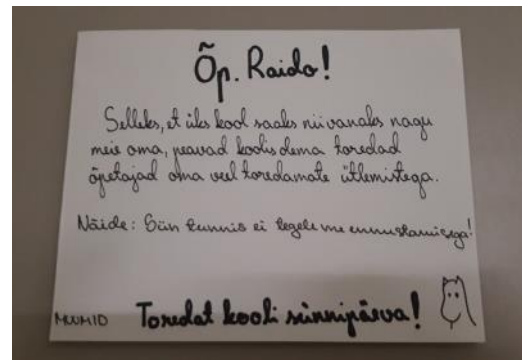 Õp. Raido!
Selleks, et üks kool saaks nii vanaks nagu
meie oma, peavad koolis olema toredad
õpetajad oma veel toredamate ütlemistega.
Näide: Siin tunnis ei tegele me ennustamisega!
MUUMID Toredat kooli sünnipäeva!